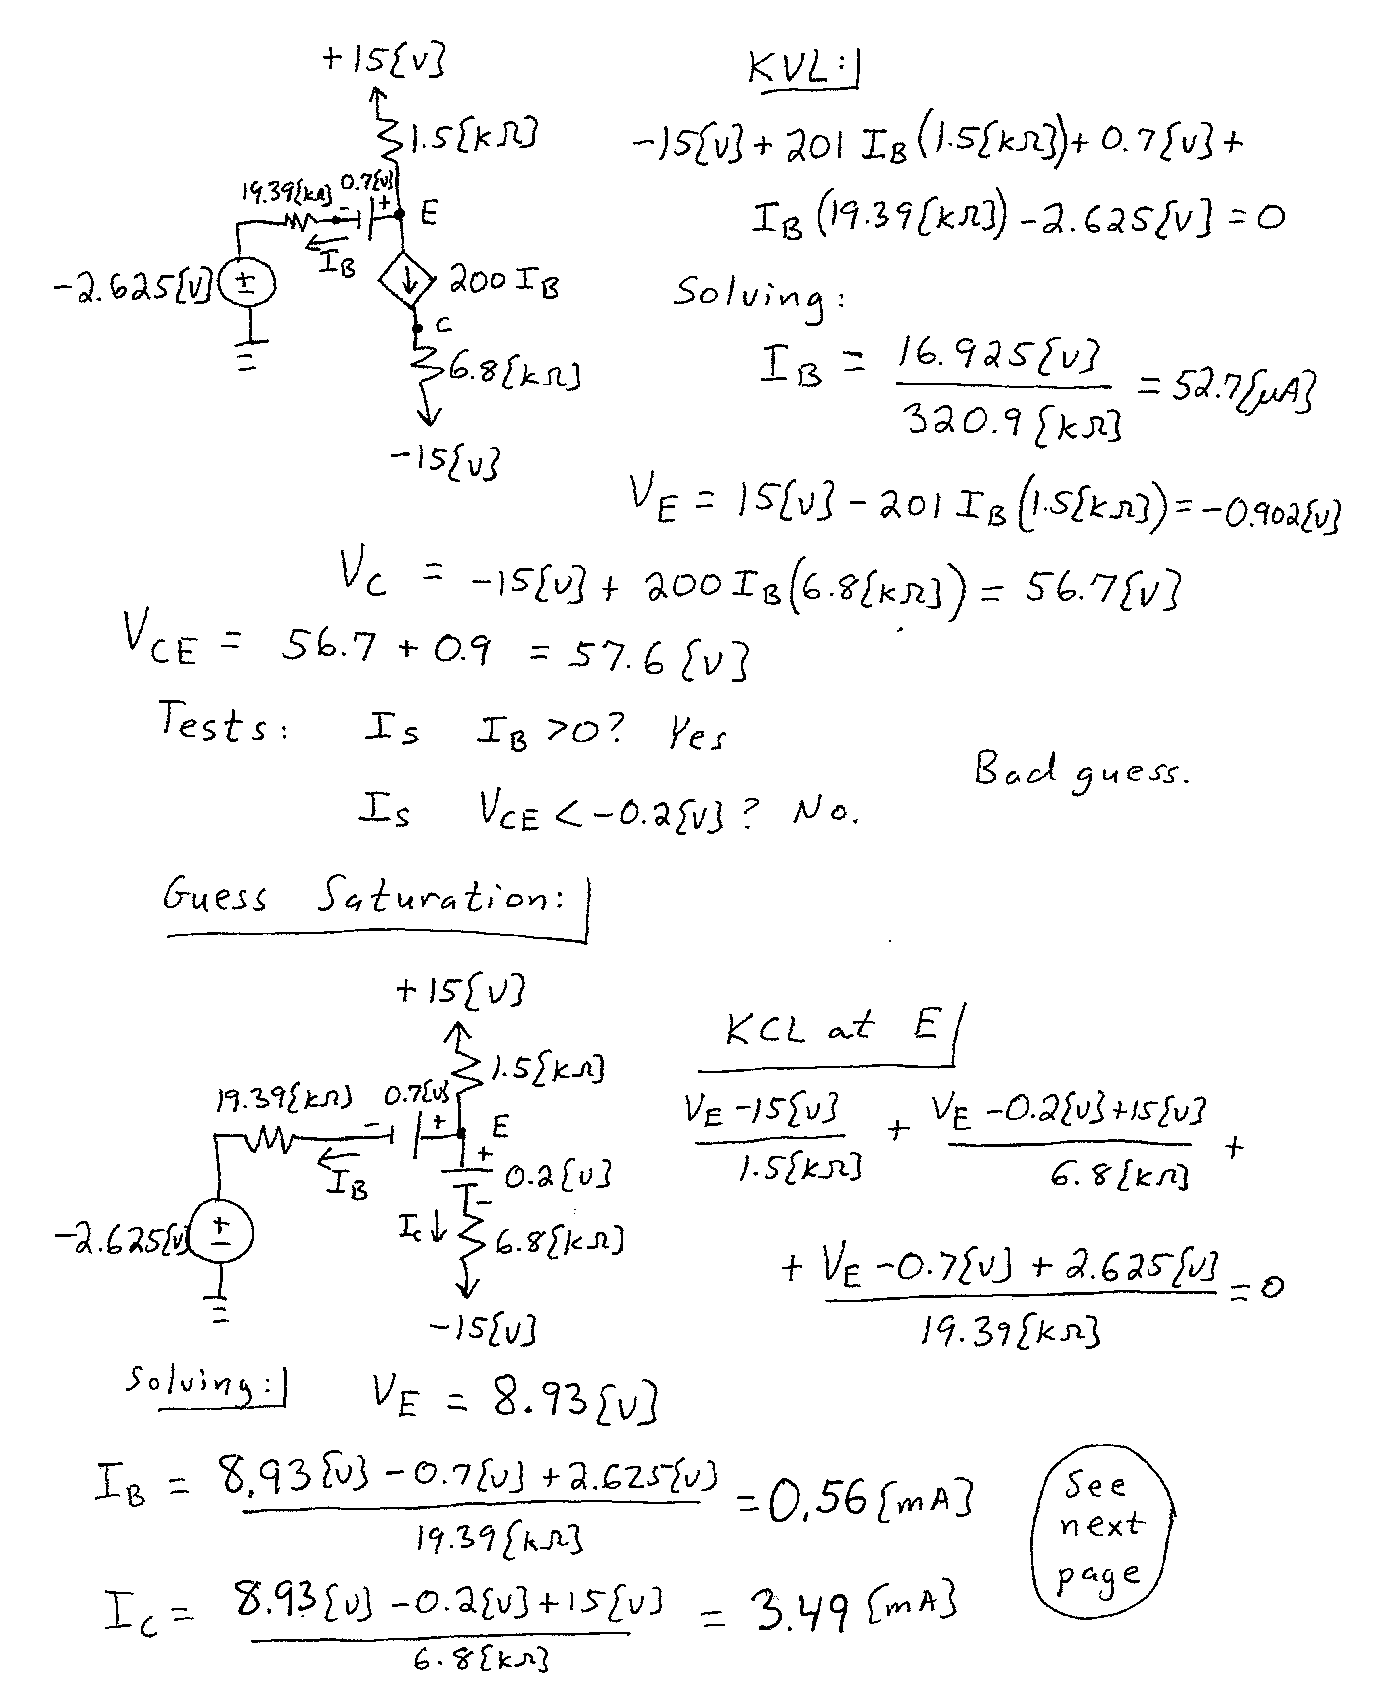 +15[V]
1.5[kΩ]
19.39[kΩ] 0.7[V]
- + E
I_B
-2.625[V] + - 200 I_B
C
6.8[kΩ]
-15[V]
KVL:
-15[V] + 201 I_B (1.5[kΩ]) + 0.7[V] +
I_B (19.39[kΩ]) - 2.625[V] = 0
Solving:
I_B = 16.925[V] / 320.9[kΩ] = 52.7[μA]
V_E = 15[V] - 201 I_B (1.5[kΩ]) = -0.902[V]
V_C = -15[V] + 200 I_B (6.8[kΩ]) = 56.7[V]
V_CE = 56.7 + 0.9 = 57.6 [V]
Tests: Is I_B >0? Yes
Bad guess.
Is V_CE < -0.2[V]? No.
Guess Saturation:
+15[V]
1.5[kΩ]
19.39[kΩ] 0.7[V]
- + E
I_B
+ 0.2[V] -
-2.625[V] + - I_C 6.8[kΩ]
-15[V]
KCL at E
V_E - 15[V] / 1.5[kΩ] + V_E - 0.2[V] + 15[V] / 6.8[kΩ] +
+ V_E - 0.7[V] + 2.625[V] / 19.39[kΩ] = 0
Solving: V_E = 8.93[V]
I_B = 8.93[V] - 0.7[V] + 2.625[V] / 19.39[kΩ] = 0.56[mA]
I_C = 8.93[V] - 0.2[V] + 15[V] / 6.8[kΩ] = 3.49[mA]
See
next
page